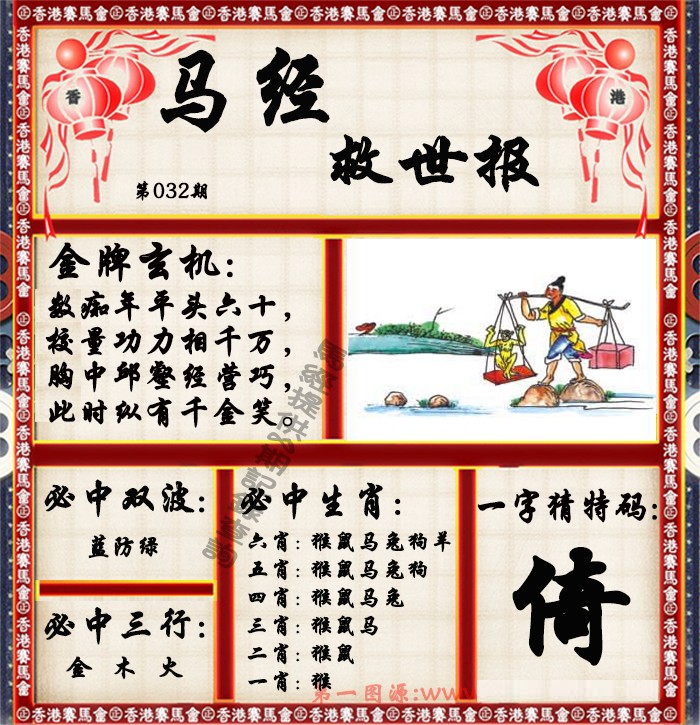 香港賽馬會㊣香港賽馬會㊣香港賽馬會㊣香港賽馬會㊣香港賽馬會㊣香港賽馬會
香
港
马经
救世报
第032期
金牌玄机：
数痴年平头六十，
校量功力相千万，
胸中邱壑经营巧，
此时纵有千金笑。
必中双波：
蓝防绿
必中三行：
金 木 火
必中生肖：
六肖：猴鼠马兔狗羊
五肖：猴鼠马兔狗
四肖：猴鼠马兔
三肖：猴鼠马
二肖：猴鼠
一肖：猴
一字猜特码：
倚
第一图源:www